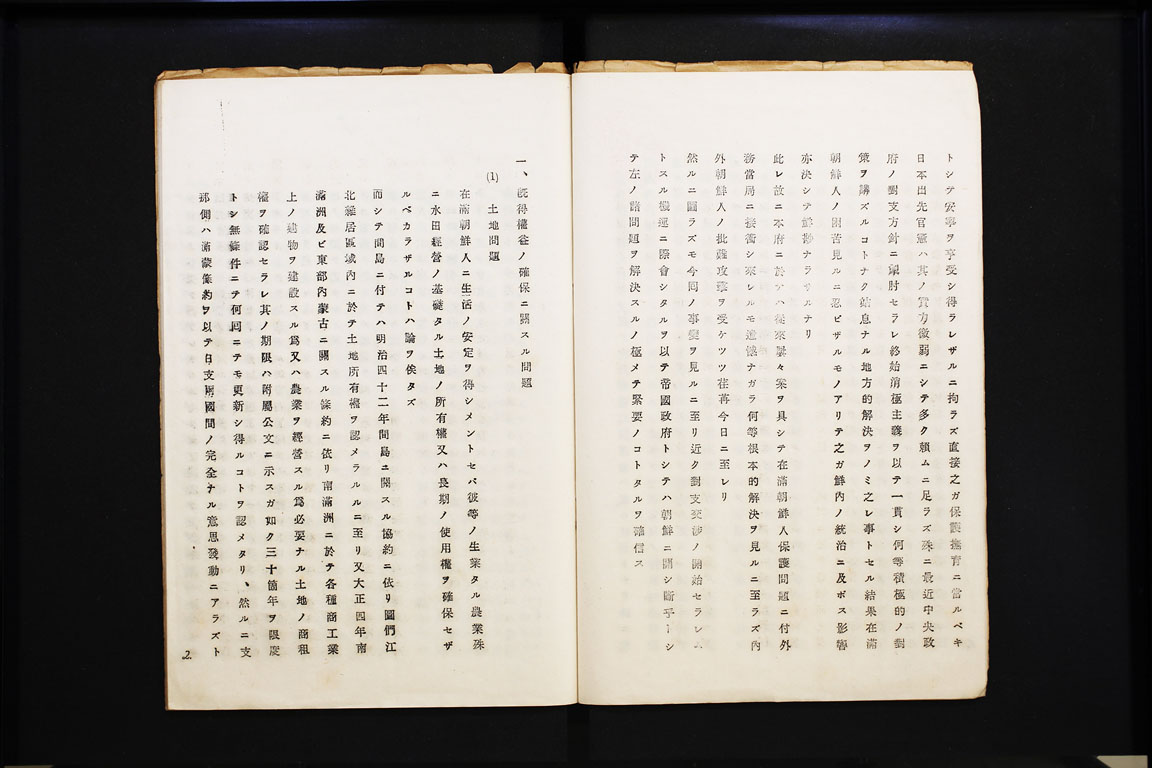 トシテ安寧ヲ享受シ得ラレザルニ拘ラズ直接之ガ保護撫育ニ當ルベキ
日本出先官憲ハ其ノ實力微弱ニシテ多ク賴ムニ足ラズ殊ニ最近中央政
府ノ對支方針ニ掣肘セラレ終始消極主義ヲ以テ一貫シ何等積極的ノ對
策ヲ講ズルコトナク姑息ナル地方的解決ヲノミ之レ事トセル結果在滿
朝鮮人ノ困苦見ルニ忍ビザルモノアリテ之ガ鮮內ノ統治ニ及ボス影響
亦決シテ鮮尠ナラザルナリ
此レ故ニ本府ニ於テハ從來屢々案ヲ具シテ在滿朝鮮人保護問題ニ付外
務當局ニ接衝シ來レルモ遺憾ナガラ何等根本的解決ヲ見ルニ至ラズ內
外朝鮮人ノ批難攻擊ヲ受ケツツ荏苒今日ニ至レリ
然ルニ圖ラズモ今回ノ事變ヲ見ルニ至リ近ク對支交涉ノ開始セラレム
トスル機運ニ際會シタルヲ以テ帝國政府トシテハ朝鮮ニ關シ斷乎トシ
テ左ノ諸問題ヲ解決スルノ極メテ緊要ノコトタルヲ確信ス
一、旣得權益ノ確保ニ關スル問題
(1) 土地問題
在滿朝鮮人ニ生活ノ安定ヲ得シメントセバ彼等ノ生業タル農業殊
ニ水田經營ノ基礎タル土地ノ所有權又ハ長期ノ使用權ヲ確保セザ
ルベカラザルコトハ論ヲ俟タズ
而シテ間島ニ付テハ明治四十二年間島ニ關スル協約ニ依リ圖們江
北雜居區域內ニ於テ土地所有權ヲ認メラルルニ至リ又大正四年南
滿洲及ビ東部內蒙古ニ關スル條約ニ依リ南滿洲ニ於テ各種商工業
上ノ建物ヲ建設スル爲又ハ農業ヲ經營スル爲必要ナル土地ノ商租
權ヲ確認セラレ其ノ期限ハ附屬公文ニ示スガ如ク三十箇年ヲ限度
トシ無條件ニテ何回ニテモ更新シ得ルコトヲ認メタリ、然ルニ支
那側ハ滿蒙條約ヲ以テ日支兩國間ノ完全ナル意思發動ニアラズト
2.